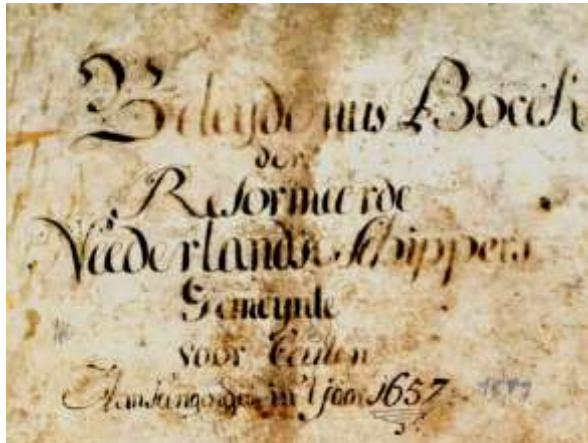 Beleydenus Boeck
der
Reformeerde
Nederlandse Schippers
Gemeynte
voor Ceulen
in't Jaer 1657